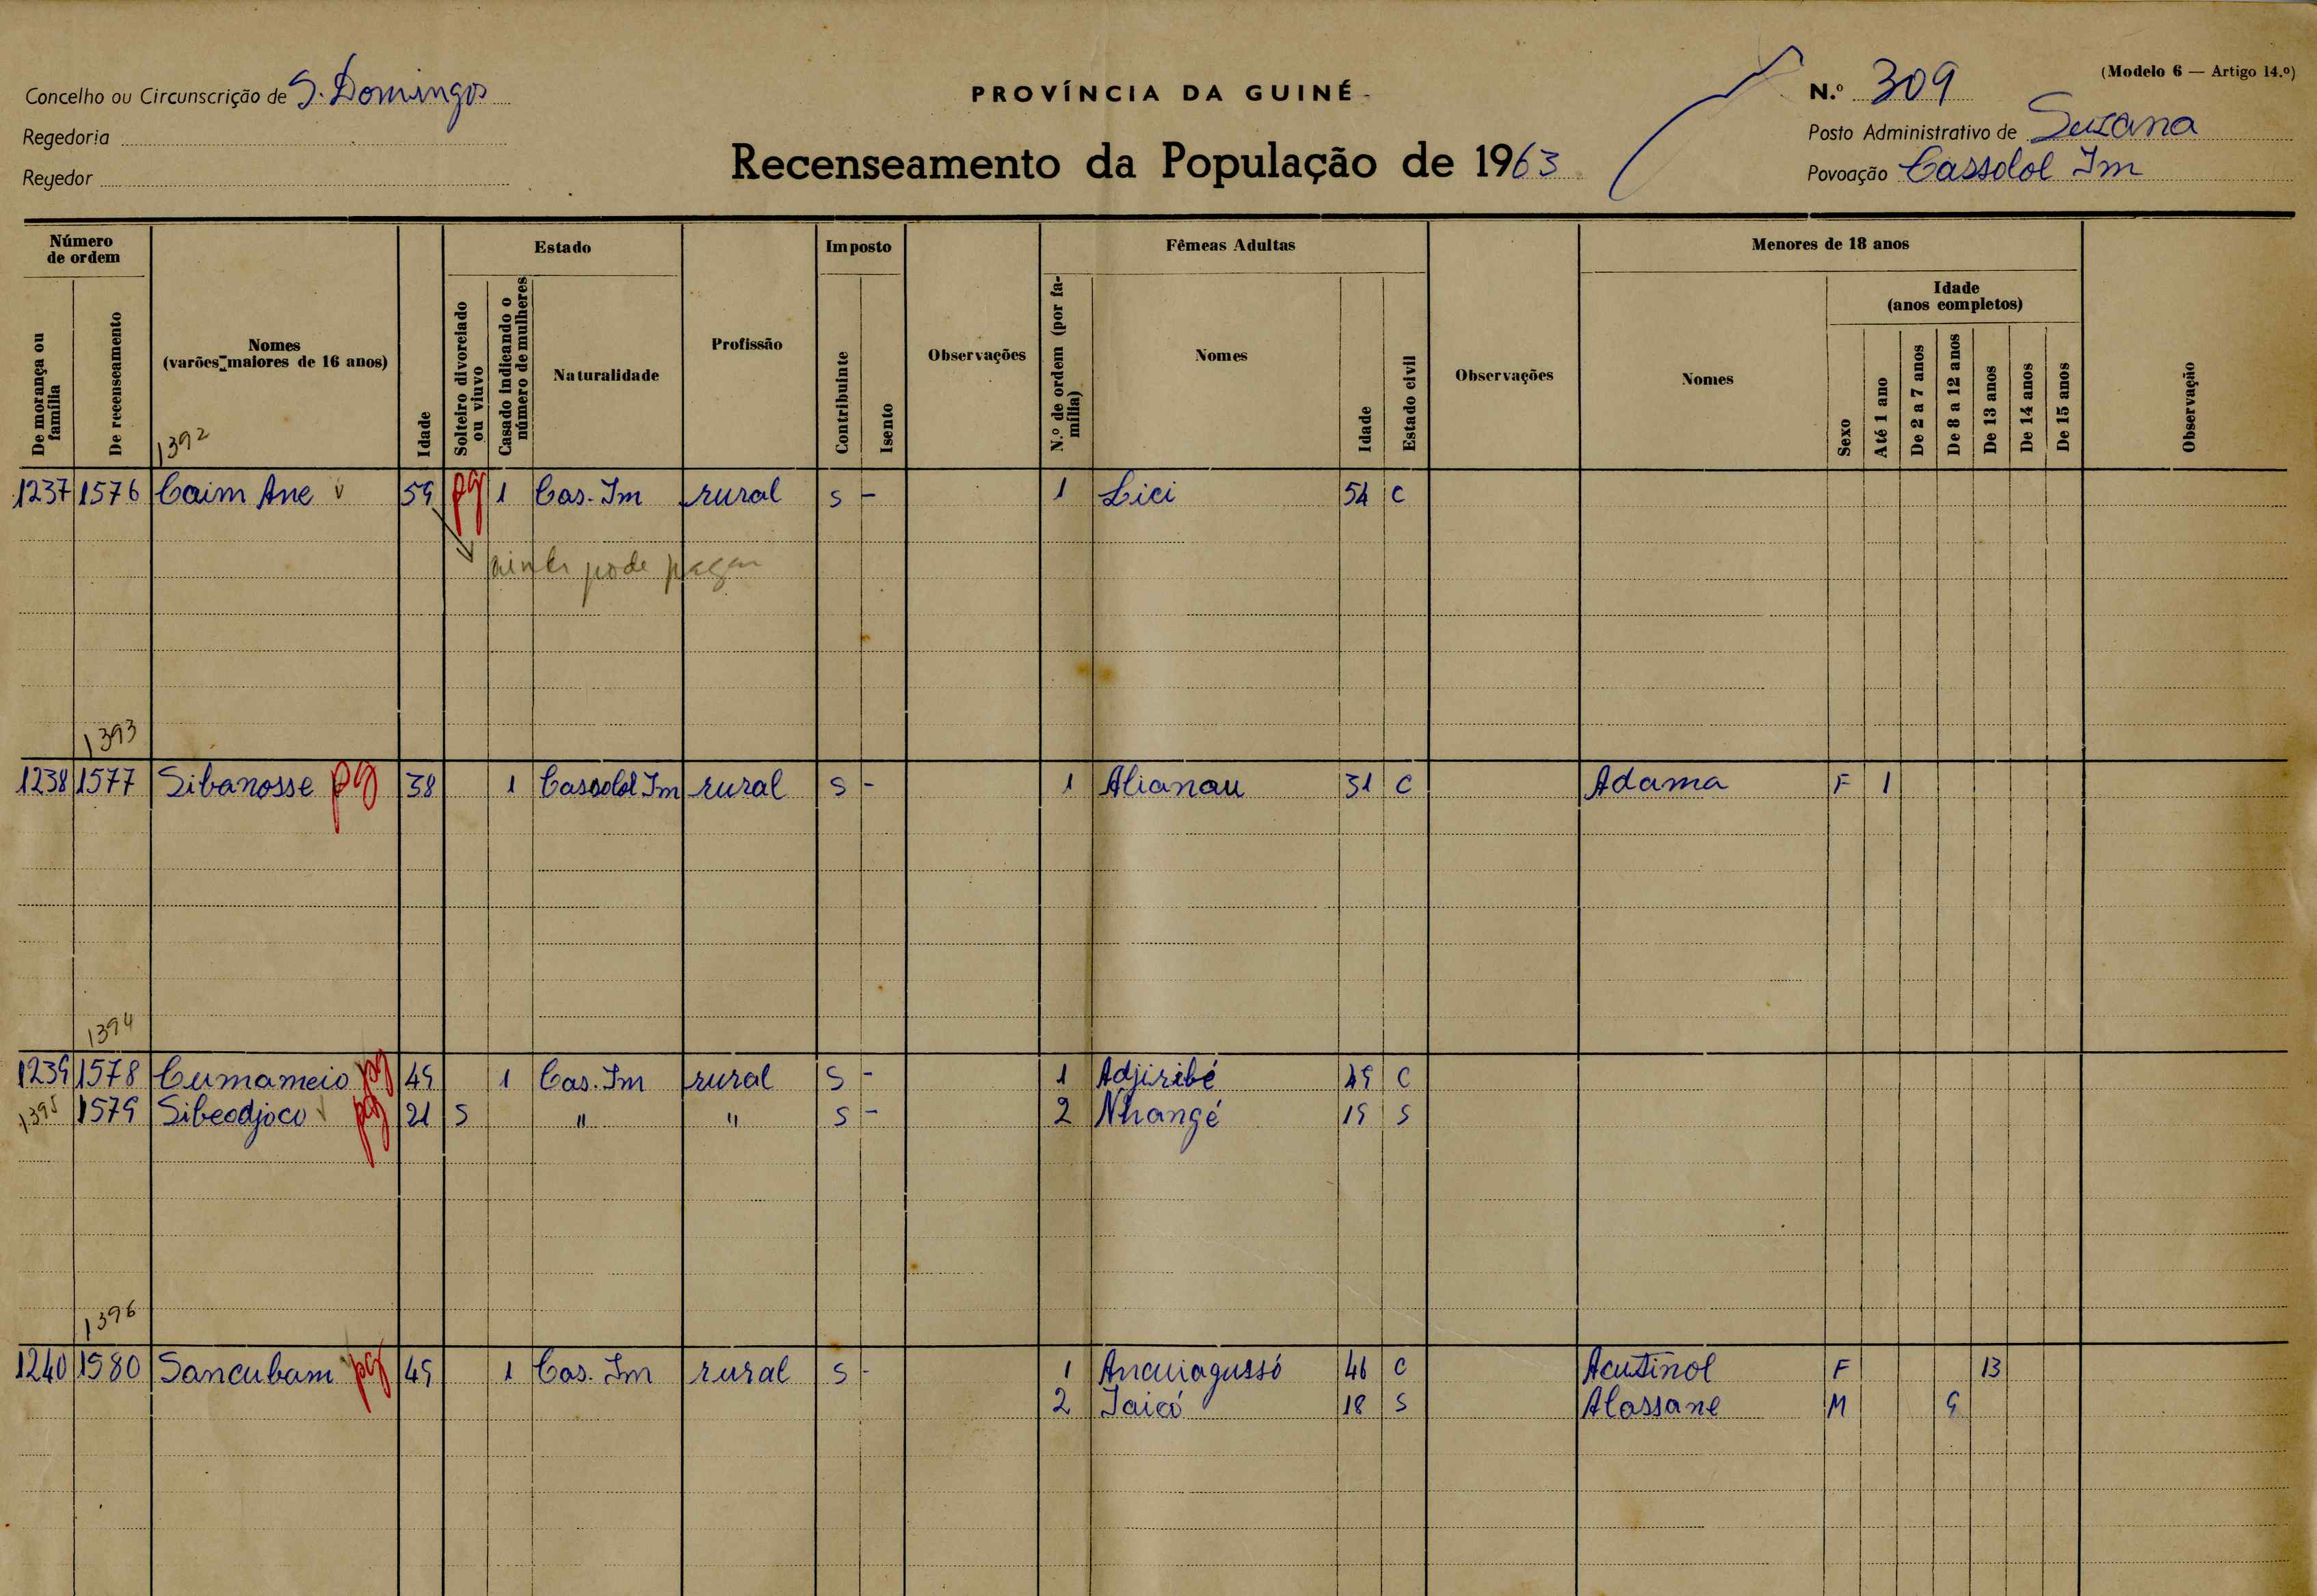 Concelho ou Circunscrição de S. Domingos
Regedoria
Regedor
PROVÍNCIA DA GUINÉ
Recenseamento da População de 1963
(Modelo 6 — Artigo 14.º)
N.º 309
Posto Administrativo de Suzana
Povoação Cassolol Im
Número de ordem
De morança ou família
De recenseamento
Nomes (varões maiores de 16 anos)
Idade
Estado
Solteiro divorciado ou viuvo
Casado indicando o número de mulheres
Naturalidade
Profissão
Imposto
Contribuinte
Isento
Observações
Fêmeas Adultas
N.º de ordem (por família)
Nomes
Idade
Estado civil
Observações
Menores de 18 anos
Nomes
Sexo
Idade (anos completos)
Até 1 ano
De 2 a 7 anos
De 8 a 12 anos
De 13 anos
De 14 anos
De 15 anos
Observação
1392
1237 1576 Caim Ane v 59 pg 1 Cas. Im rural s - 1 Lici 54 C
ainda pode pagar
1393
1238 1577 Sibanosse pg 38 1 Cassolol Im rural s - 1 Alianau 31 C Adama F 1
1394
1239 1578 Cumameio pg 49 1 Cas. Im rural S - 1 Adjiribé 49 C
1395 1579 Sibeodjoco v pg 21 S " " S - 2 Nhangé 19 S
1396
1240 1580 Sancubam pg 49 1 Cas. Im rural S - 1 Ancuiagussó 46 C Acutinol F 13
2 Jaicó 18 S Alassane M 9